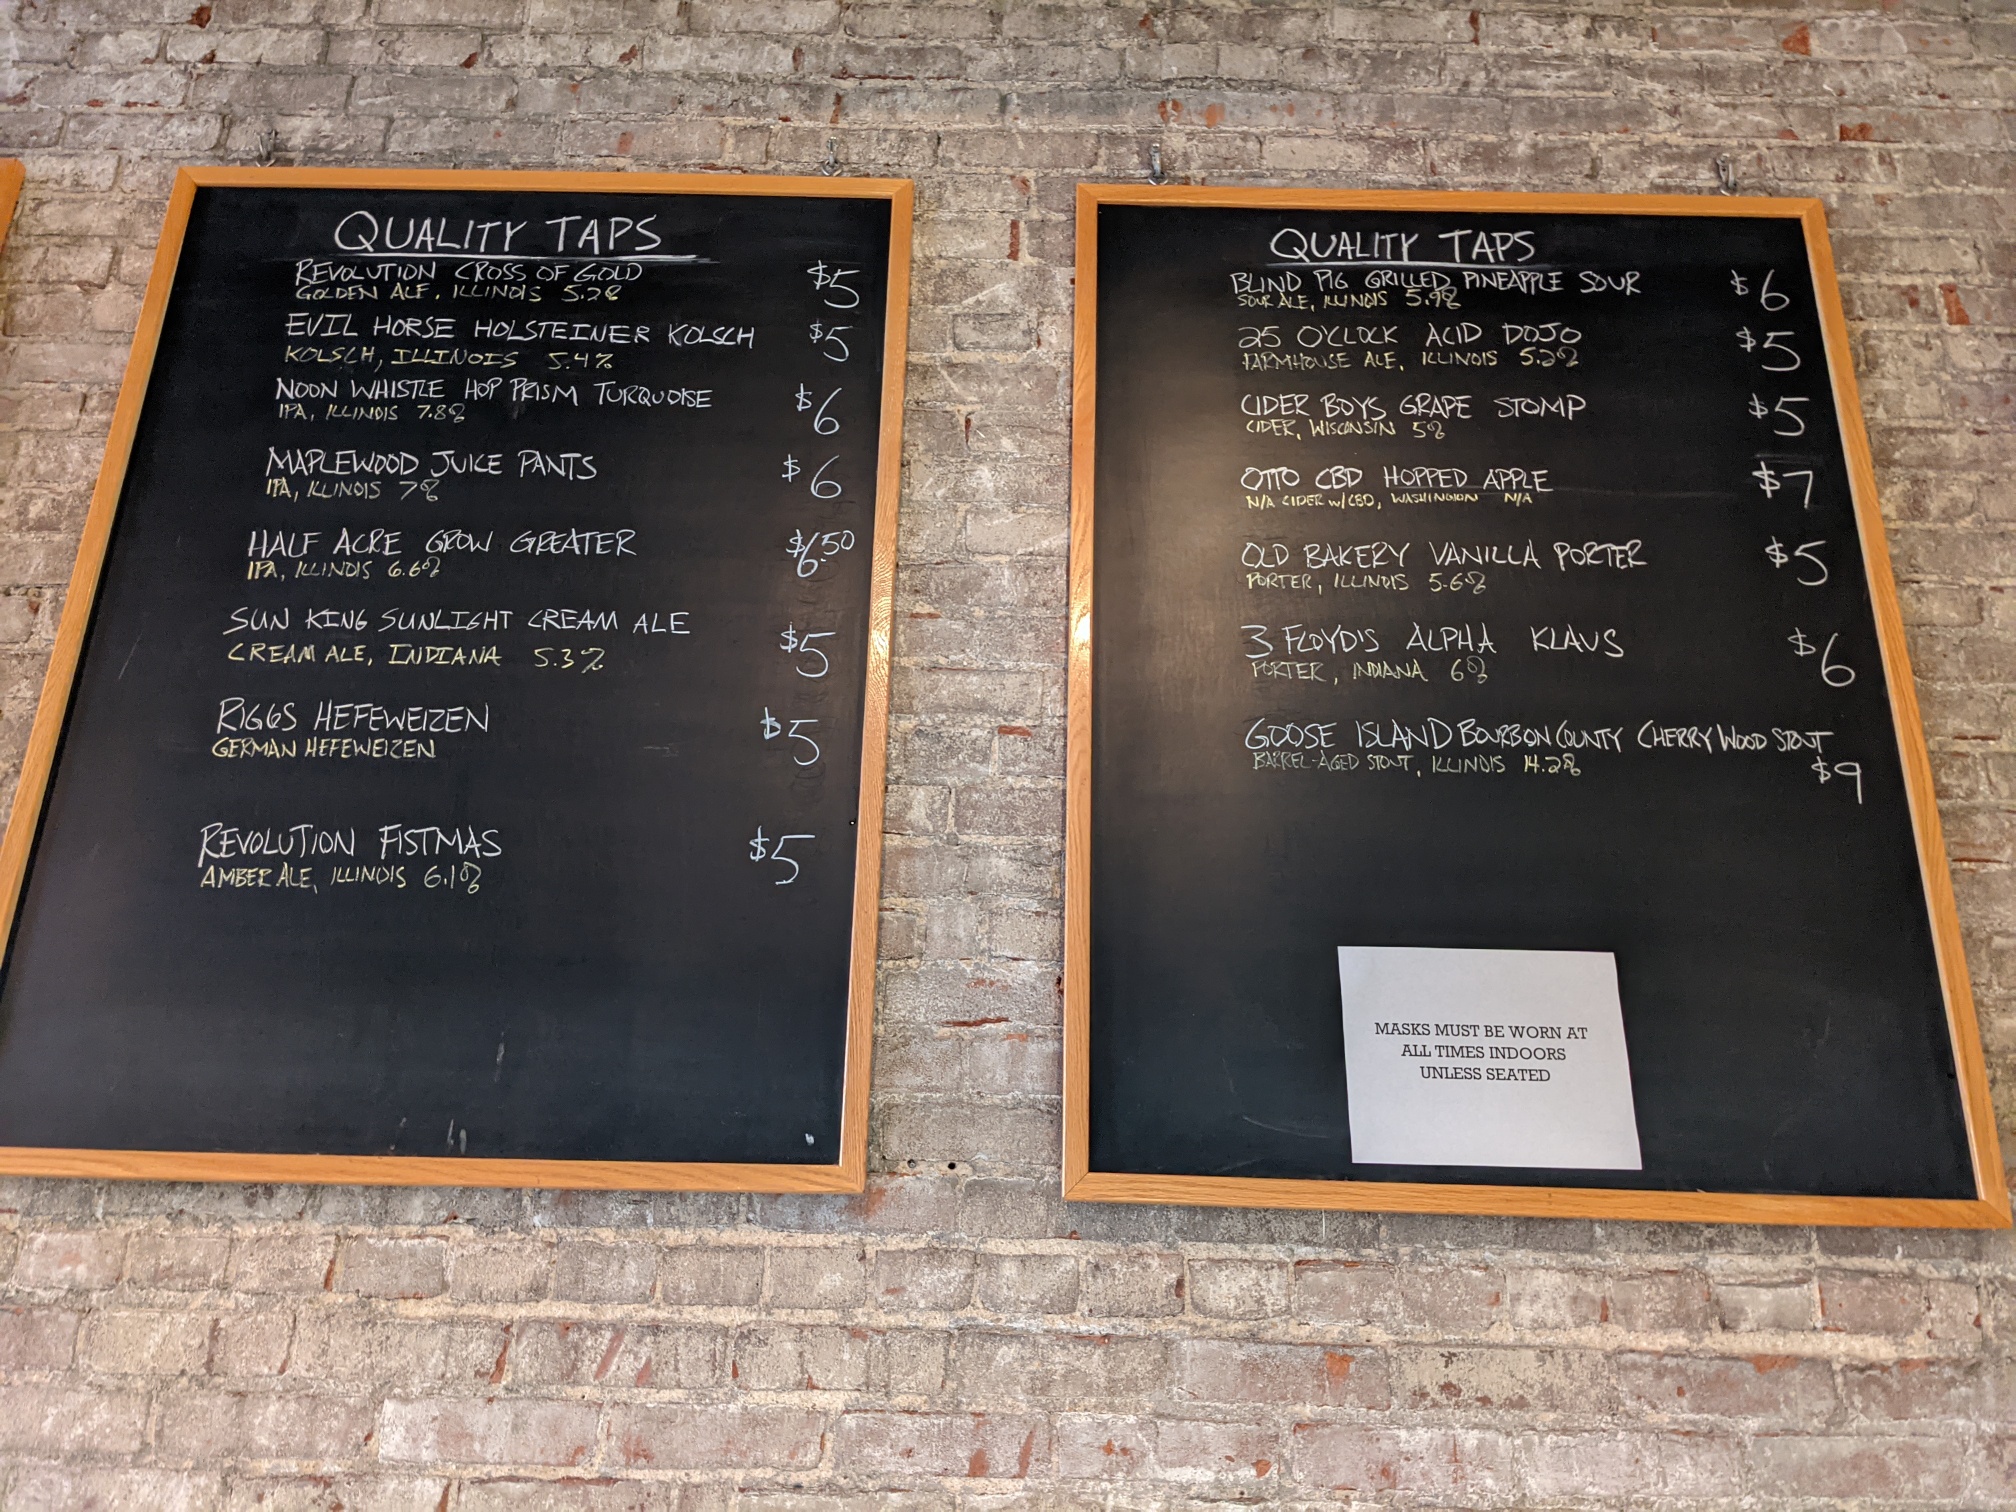 QUALITY TAPS
REVOLUTION CROSS OF GOLD $5
GOLDEN ALE, ILLINOIS 5.2%
EVIL HORSE HOLSTEINER KOLSCH $5
KOLSCH, ILLINOIS 5.4%
NOON WHISTLE HOP PRISM TURQUOISE $6
IPA, ILLINOIS 7.8%
MAPLEWOOD JUICE PANTS $6
IPA, ILLINOIS 7%
HALF ACRE GROW GREATER $6.50
IPA, ILLINOIS 6.6%
SUN KING SUNLIGHT CREAM ALE $5
CREAM ALE, INDIANA 5.3%
RIGGS HEFEWEIZEN $5
GERMAN HEFEWEIZEN
REVOLUTION FISTMAS $5
AMBER ALE, ILLINOIS 6.1%
QUALITY TAPS
BLIND PIG GRILLED PINEAPPLE SOUR $6
SOUR ALE, ILLINOIS 5.9%
25 O'CLOCK ACID DOJO $5
FARMHOUSE ALE, ILLINOIS 5.2%
CIDER BOYS GRAPE STOMP $5
CIDER, WISCONSIN 5%
OTTO CBD HOPPED APPLE $7
N/A CIDER w/CBD, WASHINGTON N/A
OLD BAKERY VANILLA PORTER $5
PORTER, ILLINOIS 5.6%
3 FLOYD'S ALPHA KLAUS $6
PORTER, INDIANA 6%
GOOSE ISLAND BOURBON COUNTY CHERRY WOOD STOUT
BARREL-AGED STOUT, ILLINOIS 14.2% $9
MASKS MUST BE WORN AT
ALL TIMES INDOORS
UNLESS SEATED